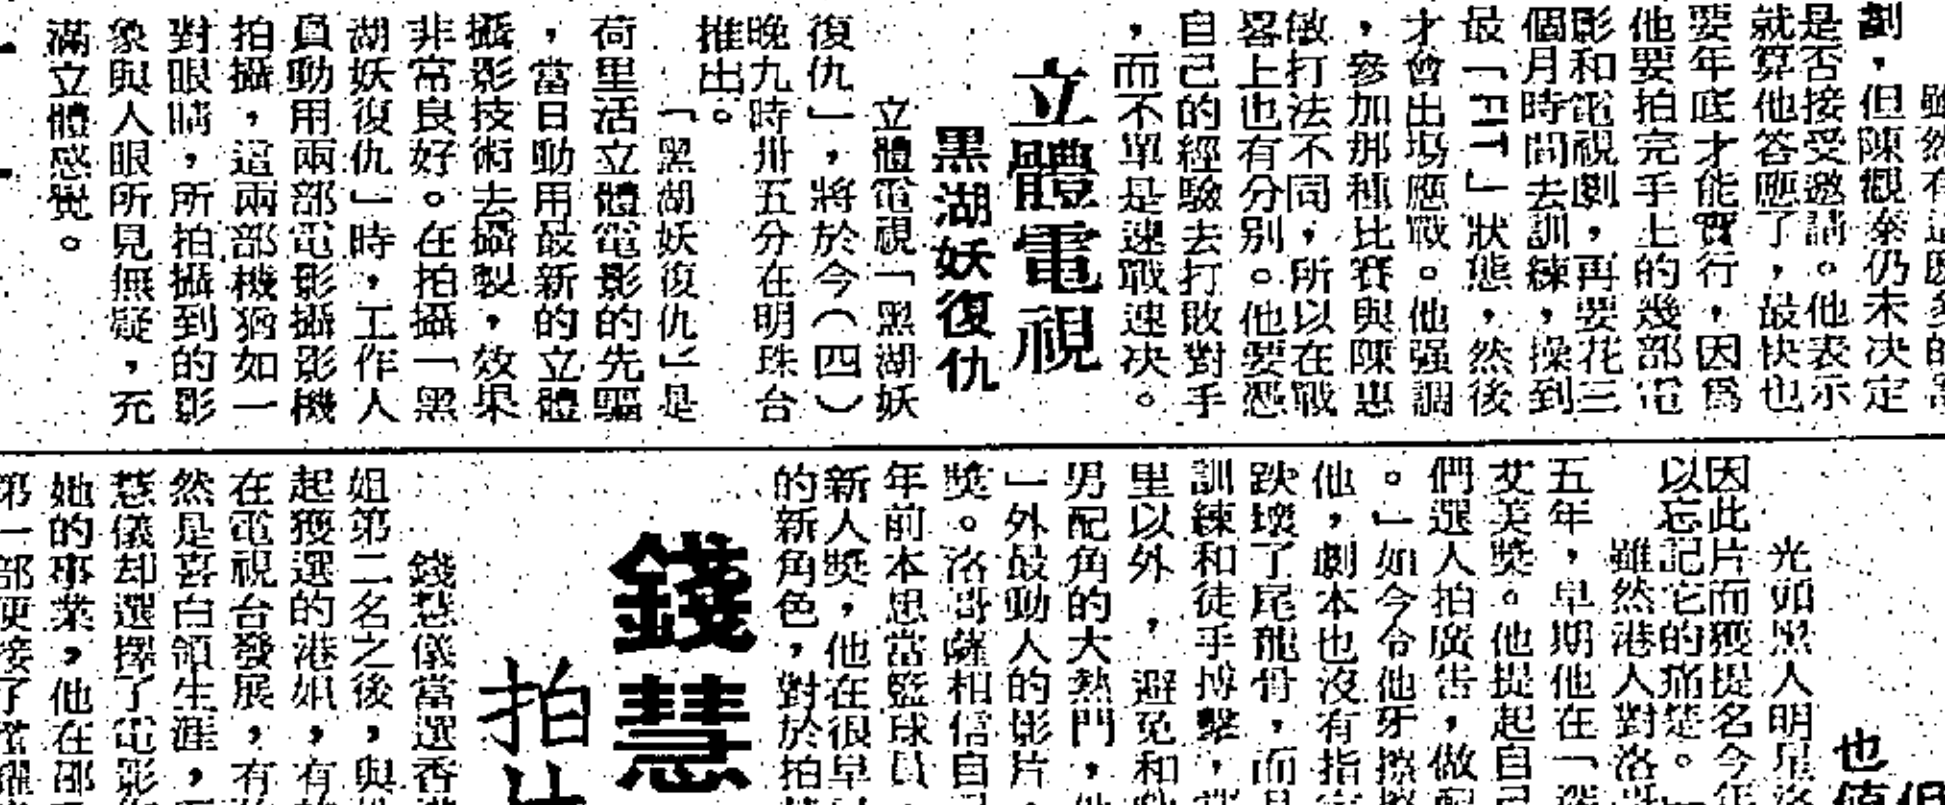 雖然有這
劃，但陳觀泰仍未决定
是否接受邀請。他表示
就算他答應了，最快也
要年底才能實行，因爲
他要拍完手上的幾部電
影和電視劇，再要花三
個月時間去訓練，操到
最「FIT」狀態，然後
才會出場應戰。他强調
，參加那種比賽與陳惠
敏打法不同，所以在戰
畧上也有分別。他要憑
自己的經驗去打敗對手
，而不單是速戰速决。
立體電視
黑湖妖復仇
立體電視「黑湖妖
復仇」，將於今（四）
晚九時卅五分在明珠台
推出。
「黑湖妖復仇」是
荷里活立體電影的先驅
，當日動用最新的立體
攝影技術去攝製，效果
非常良好。在拍攝「黑
湖妖復仇」時，工作人
員動用兩部電影攝影機
拍攝，這兩部機猶如一
對眼睛，所拍攝到的影
象與人眼所見無疑，充
滿立體感覺。
也值
光如黑人明星洛
因此片而獲提名今年
以忘記它的痛楚。
雖然港人對洛哥
五年，早期他在「
艾美獎。他提起自己
們選人拍廣告，做配
。」如今令他牙擦擦
他，劇本也沒有指定
跌壞了尾龍骨，而且
訓練和徒手搏擊，
里以外，避免和
男配角的大熱門，他
」外最動人的影片。
獎。洛哥薩相信自
年前本思當籃球員，
新人獎，他在很早
的新角色，對於拍
錢慧
拍片
錢慧儀當選香港
姐第二名之後，與
起獲選的港姐，有
在電視台發展，有
然是喜白領生涯，
慧儀却選擇了電影
她的事業，他在邵
第一部便接了